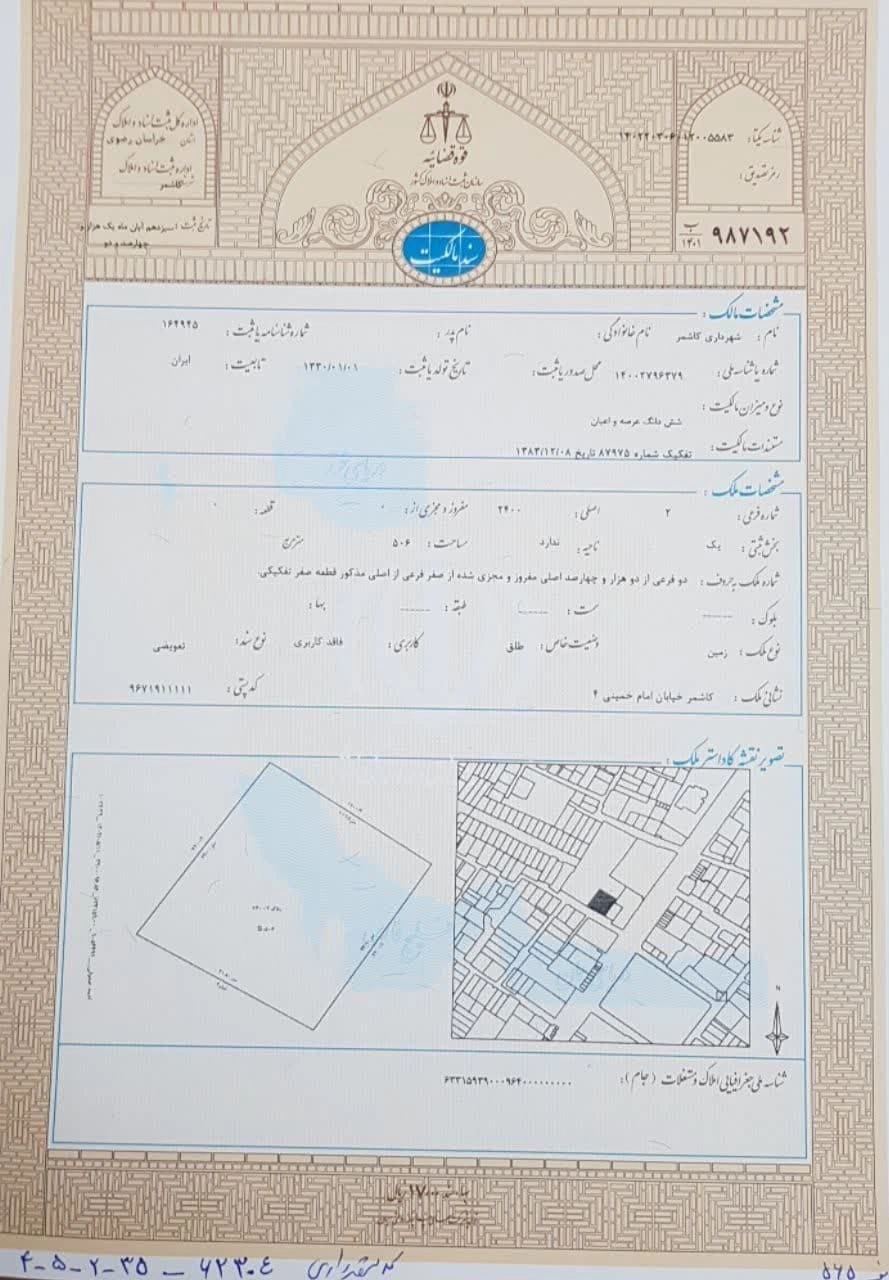 قوه قضائیه
سازمان ثبت اسناد و املاک کشور
اداره کل ثبت اسناد و املاک
استان خراسان رضوی
اداره ثبت اسناد و املاک
کاشمر
تاریخ ثبت: سیزدهم آبان ماه یک هزار و
چهارصد و دو
شناسه یکتا:
رمز تصدیق:
۹۸۷۱۹۲ ب ۱۴۰۱
سند مالکیت
مشخصات مالک:
نام: شهرداری کاشمر نام خانوادگی: نام پدر: شماره شناسنامه یا ثبت: ۱۶۴۹۴۵
شماره یا شناسه ملی: ۱۴۰۰۲۷۹۶۳۷۹ محل صدور یا ثبت: تاریخ تولد یا ثبت: ۱۳۳۰/۰۱/۰۱ تابعیت: ایران
نوع و میزان مالکیت: شش دانگ عرصه و اعیان
مستندات مالکیت: تفکیک شماره ۸۷۹۷۵ تاریخ ۱۳۸۳/۱۲/۰۸
مشخصات ملک:
شماره فرعی: ۲ اصلی: ۲۴۰۰ مفروز و مجزی از: ۰ قطعه: ۰
بخش ثبتی: یک ناحیه: ندارد مساحت: ۵۰۶ مترمربع
شماره ملک به حروف: دو فرعی از دو هزار و چهارصد اصلی مفروز و مجزی شده از صفر فرعی از اصلی مذکور قطعه صفر تفکیکی.
بلوک: ------ سمت: ------ طبقه: ------ بها:
نوع ملک: زمین وضعیت خاص: طلق کاربری: فاقد کاربری نوع سند: تعویضی
نشانی ملک: کاشمر خیابان امام خمینی ۴ کد پستی: ۹۶۷۱۹۱۱۱۱۱
تصویر نقشه کاداستر ملک:
N
شناسه ملی جغرافیایی املاک و مستغلات (جام): ۶۳۳۱۵۹۳۹۰۰۰۹۶۴۰۰۰۰۰۰۰۰۰
۴-۵-۲-۳۵ - ۶۲۳۰۴
۵۶۵